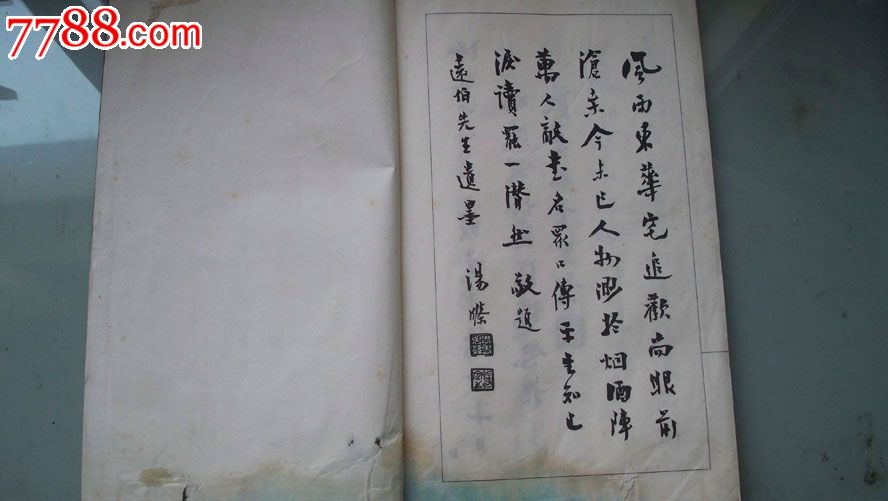 7788.com
風雨東華宅追歡尚眼前
滄桑今未已人物渺於烟酒陣
萬人敵書名眾口傳平生知己
淚讀罷一潸然 敬題
遠伯先生遺墨
湯滌